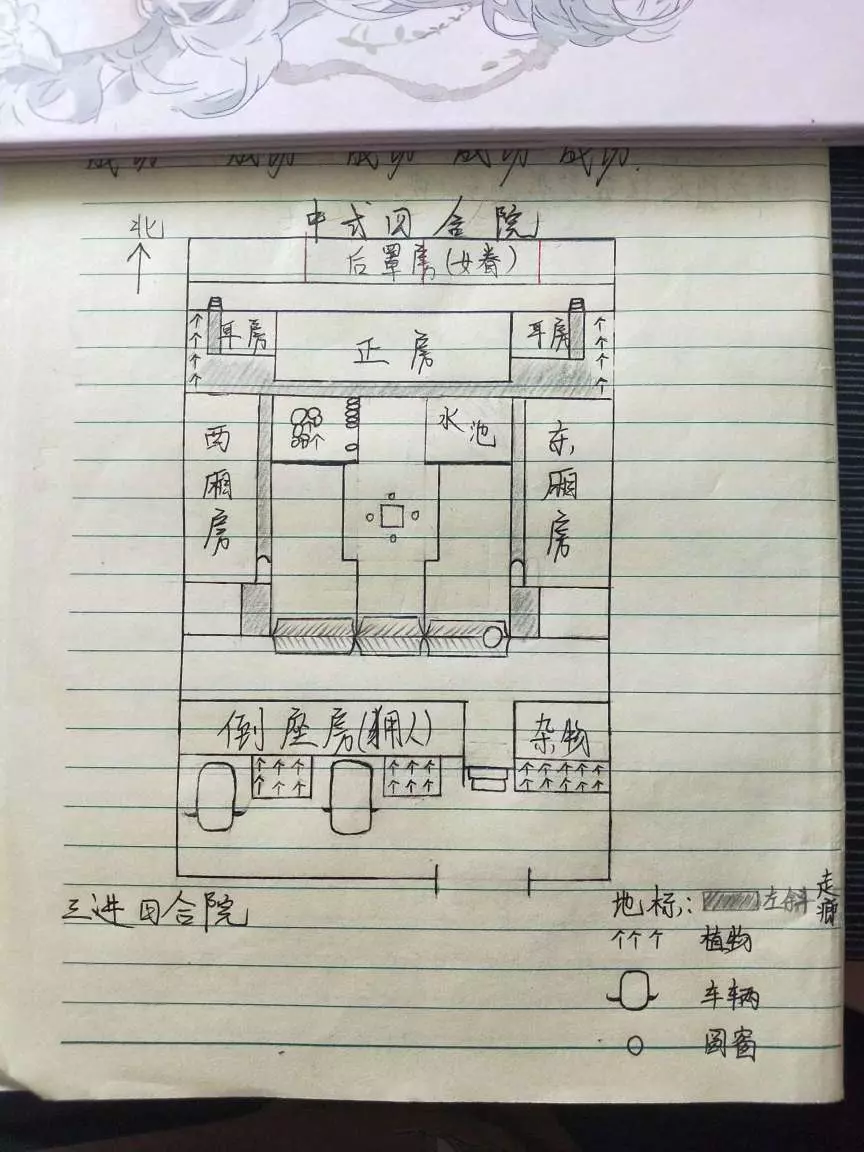 成功 成功 成功 成功 成功.
北
中式四合院
后罩房(女眷)
耳房
正房
耳房
西厢房
水池
东厢房
倒座房(佣人)
杂物
三进四合院
地标: 左斜 走廊
植物
车辆
圆窗